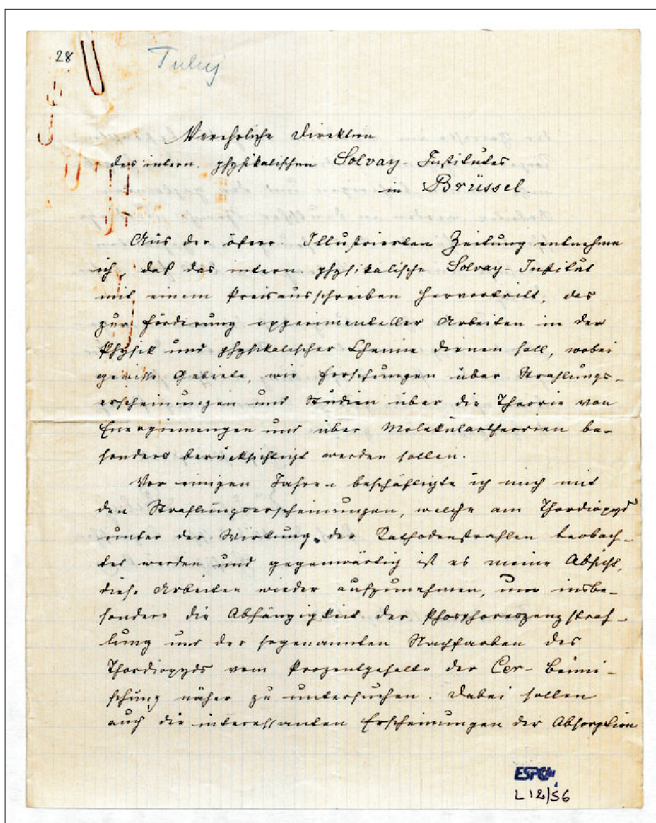 28
Verehrliche Direktion
des intern. physikalischen Solvay-Institutes
in Brüssel.
Aus der österr. Illustrierten Zeitung entnehme
ich, daß das intern. physikalische Solvay-Institut
mit einem Preisausschreiben hervortritt, das
zur Förderung experimenteller Arbeiten in der
Physik und physikalischer Chemie dienen soll, wobei
gewisse Gebiete, wie Forschungen über Strahlungs-
erscheinungen und Studien über die Theorie von
Energiemengen und über Molekulartheorien be-
sonders berücksichtigt werden sollen.
Vor einigen Jahren beschäftigte ich mich mit
den Strahlungserscheinungen, welche am Thordioxyd
unter der Wirkung der Kathodenstrahlen beobach-
tet werden und gegenwärtig ist es meine Absicht,
diese Arbeiten wieder aufzunehmen, um insbe-
sondere die Abhängigkeit der Phosphoreszenzstrah-
lung und der sogenannten Nachfarben des
Thordioxyds vom Prozentgehalte der Cer-Beimi-
schung näher zu untersuchen. Dabei sollen
auch die interessanten Erscheinungen der Absorption
ESPCI
L12/56